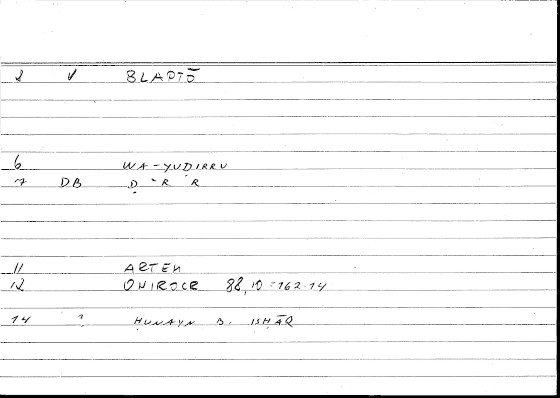 2 V BLAPTŌ
6 WA-YUḌIRRU
7 DB Ḍ-R R
11 ARTEM
12 ONIROCR 88,10=162.14
14 : ḤUNAYN B. ISḤĀQ